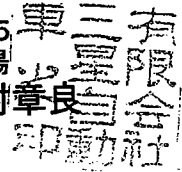 場
章良
有限会社
三星自動
車之印